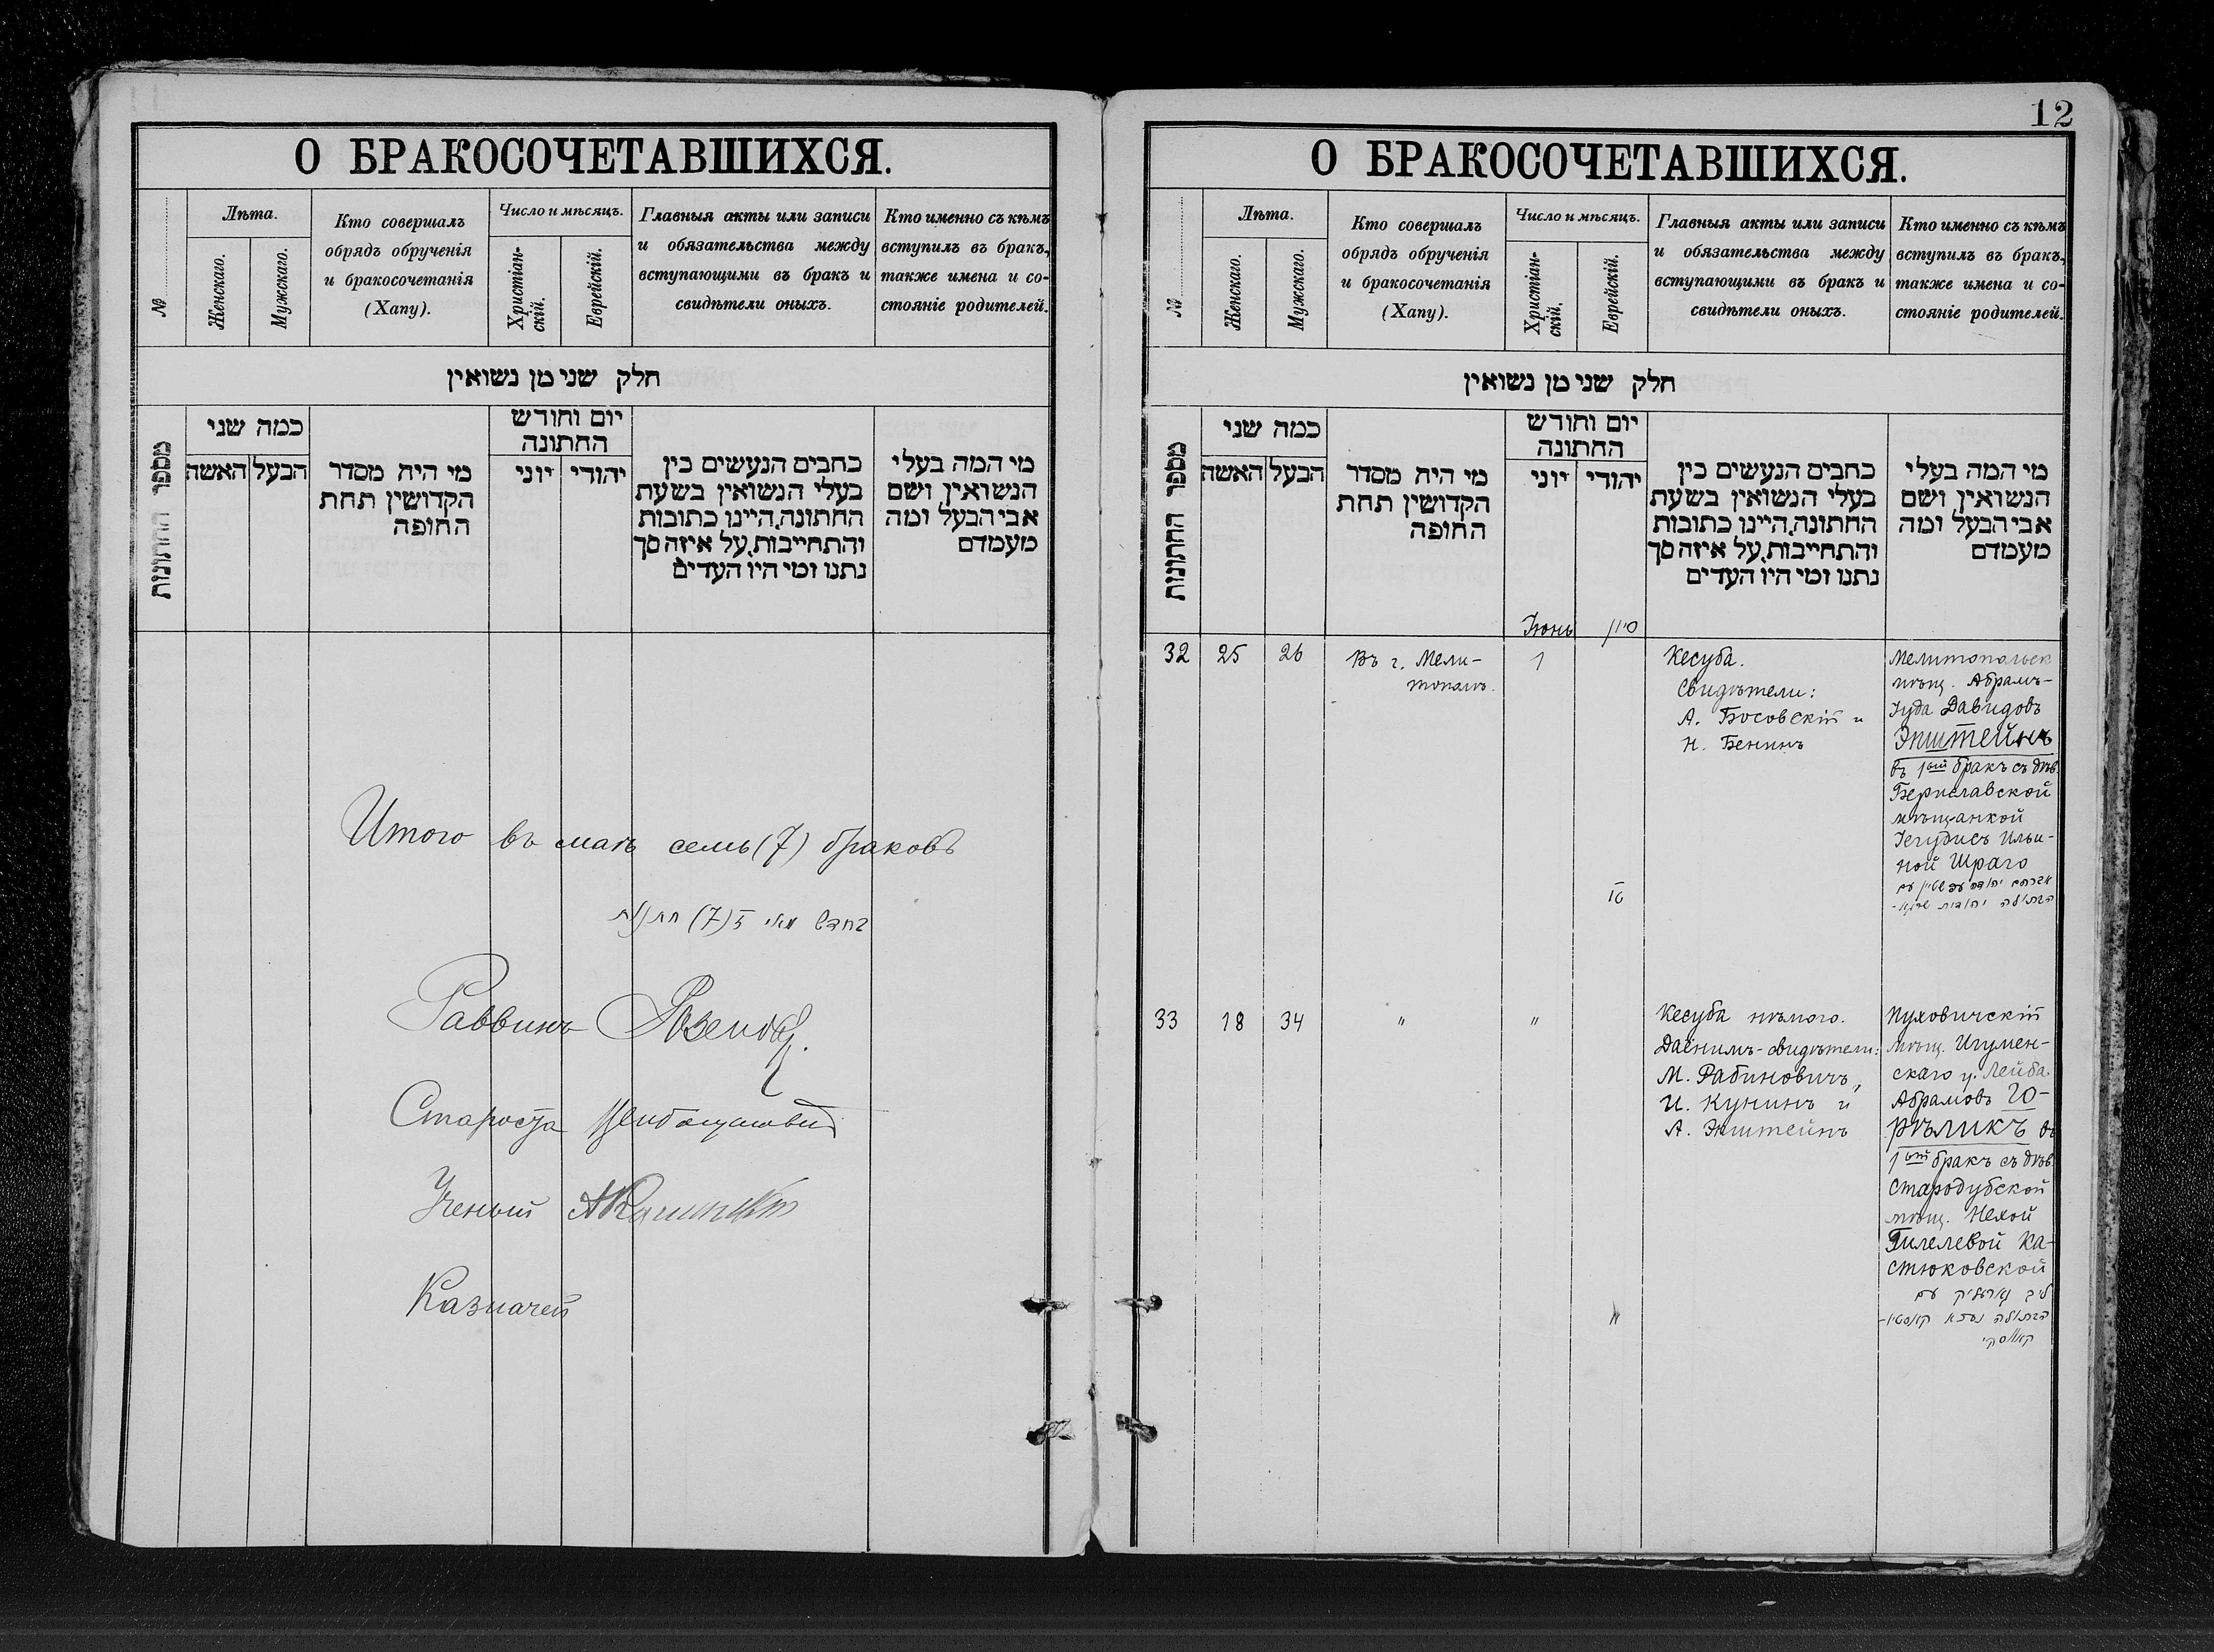 О БРАКОСОЧЕТАВШИХСЯ.
№
Лѣта.
Женскаго.
Мужскаго.
Кто совершалъ
обрядъ обрученія
и бракосочетанія
(Хапу).
Число и мѣсяцъ.
Христіан-
скій.
Еврейскій.
Главныя акты или записи
и обязательства между
вступающими въ бракъ и
свидѣтели оныхъ.
Кто именно съ кѣмъ
вступилъ въ бракъ,
также имена и со-
стояніе родителей.
חלק שני מן נשואין
מספר החתונות
כמה שני
האשה
הבעל
מי היה מסדר
הקדושין תחת
החופה
יום וחודש
החתונה
יוני
יהודי
כתבים הנעשים בין
בעלי הנשואין בשעת
החתונה, היינו כתובות
והתחייבות, על איזה סך
נתנו ומי היו העדים
מי המה בעלי
הנשואין ושם
אבי הבעל ומה
מעמדם
Итого въ маѣ семь (7) браковъ
Раввинъ
Староста
Ученый
Казначей
12
О БРАКОСОЧЕТАВШИХСЯ.
№
Лѣта.
Женскаго.
Мужскаго.
Кто совершалъ
обрядъ обрученія
и бракосочетанія
(Хапу).
Число и мѣсяцъ.
Христіан-
скій.
Еврейскій.
Главныя акты или записи
и обязательства между
вступающими въ бракъ и
свидѣтели оныхъ.
Кто именно съ кѣмъ
вступилъ въ бракъ,
также имена и со-
стояніе родителей.
חלק שני מן נשואין
מספר החתונות
כמה שני
האשה
הבעל
מי היה מסדר
הקדושין תחת
החופה
יום וחודש
החתונה
יוני
יהודי
כתבים הנעשים בין
בעלי הנשואין בשעת
החתונה, היינו כתובות
והתחייבות, על איזה סך
נתנו ומי היו העדים
מי המה בעלי
הנשואין ושם
אבי הבעל ומה
מעמדם
Іюнь
סיון
32
25
26
Въ г. Мели-
тополѣ.
1
Кесуба.
Свидѣтели:
А. Босовскій и
Н. Бенинъ
Мелитопольск
мѣщ. Абрамъ-
Іуда Давидовъ
Эпштейнъ
въ 1ый бракъ съ дѣв.
Бериславской
мѣщанкой
Іегудисъ Ильи-
ной Шраго
אברהם יהודה עפשטיין עם
הבתולה יהודית שראגא
33
18
34
"
"
"
Кесуба нѣмого.
Даенимъ-свидѣтели:
М. Рабиновичъ,
И. Кунинъ и
А. Эпштейнъ
Пуховичскій
мѣщ. Игумен-
скаго у. Лейба
Абрамовъ Го-
рѣликъ въ
1ый бракъ съ дѣв.
Стародубской
мѣщ. Нехой
Гилелевой Ка-
стюковской
ליב גארעליק עם
הבתולה נחה קאסטיו-
קאווסקי